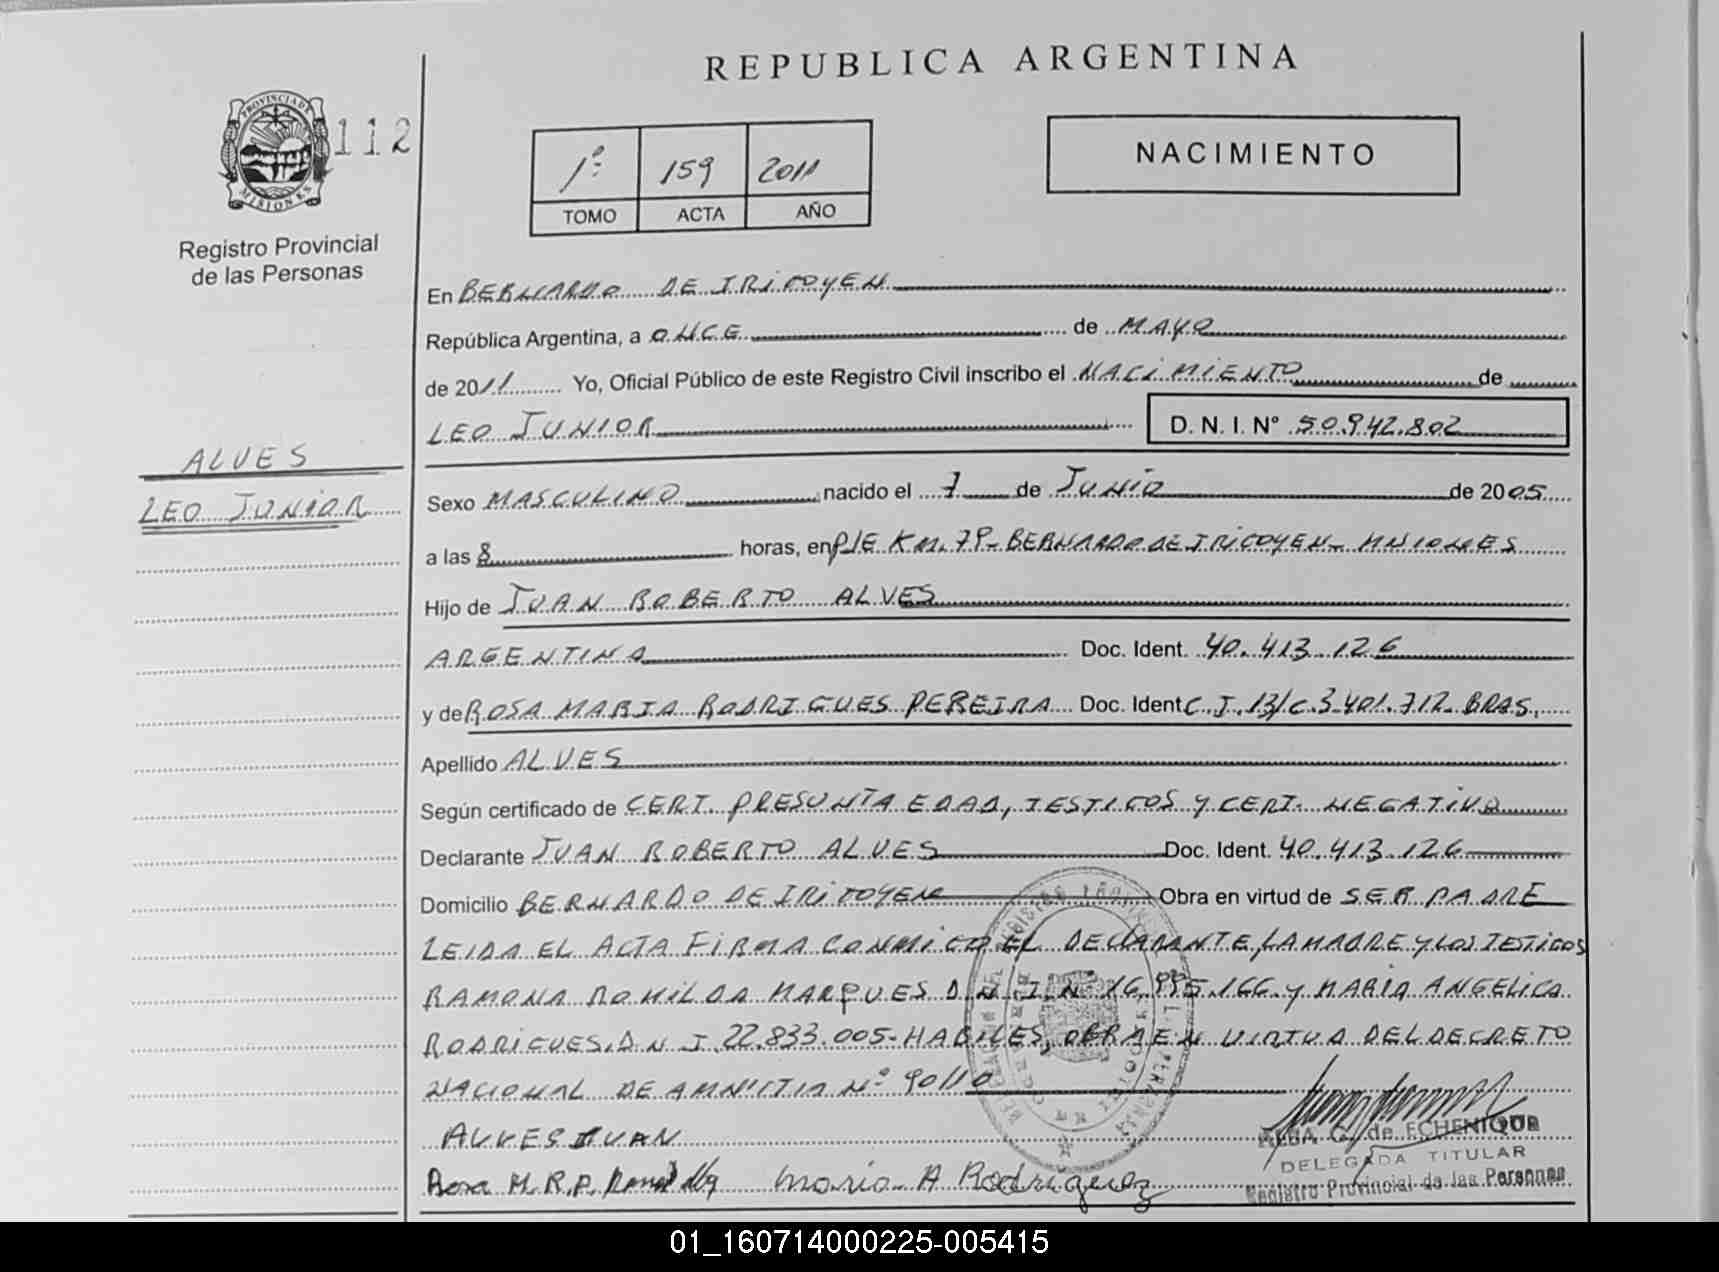 REPUBLICA ARGENTINA
PROVINCIA DE MISIONES
112
Registro Provincial
de las Personas
1º 159 2011
TOMO ACTA AÑO
NACIMIENTO
ALVES
LEO JUNIOR
En BERNARDO DE IRIGOYEN
República Argentina, a ONCE de MAYO
de 2011 Yo, Oficial Público de este Registro Civil inscribo el NACIMIENTO de
LEO JUNIOR D. N. I. Nº 50.942.802
Sexo MASCULINO nacido el 7 de JUNIO de 2005
a las 8 horas, en P/E KM. 79- BERNARDO DE IRIGOYEN- MISIONES
Hijo de JUAN ROBERTO ALVES
ARGENTINA Doc. Ident. 40.413.126
y de ROSA MARIA RODRIGUES PEREIRA Doc. Ident C.I. 13/C.3.401.712- BRAS.
Apellido ALVES
Según certificado de CERT. PRESUNTA EDAD, TESTIGOS Y CERT. NEGATIVO
Declarante JUAN ROBERTO ALVES Doc. Ident. 40.413.126
Domicilio BERNARDO DE IRIGOYEN Obra en virtud de SER PADRE
LEIDA EL ACTA FIRMA CONMIGO EL DECLARANTE, LA MADRE Y LOS TESTIGOS
RAMONA ROMILDA MARQUES D.N.I. Nº 16.995.166 y MARIA ANGELICA
RODRIGUES.D.N.I. 22.833.005-HABILES, OBRA EN VIRTUD DEL DECRETO
NACIONAL DE AMNISTIA Nº 90110
ALVES JUAN
Rosa M.R.P. Maria A Rodriguez
ALBA G. de ECHENIQUE
DELEGADA TITULAR
Registro Provincial de las Personas
01_160714000225-005415